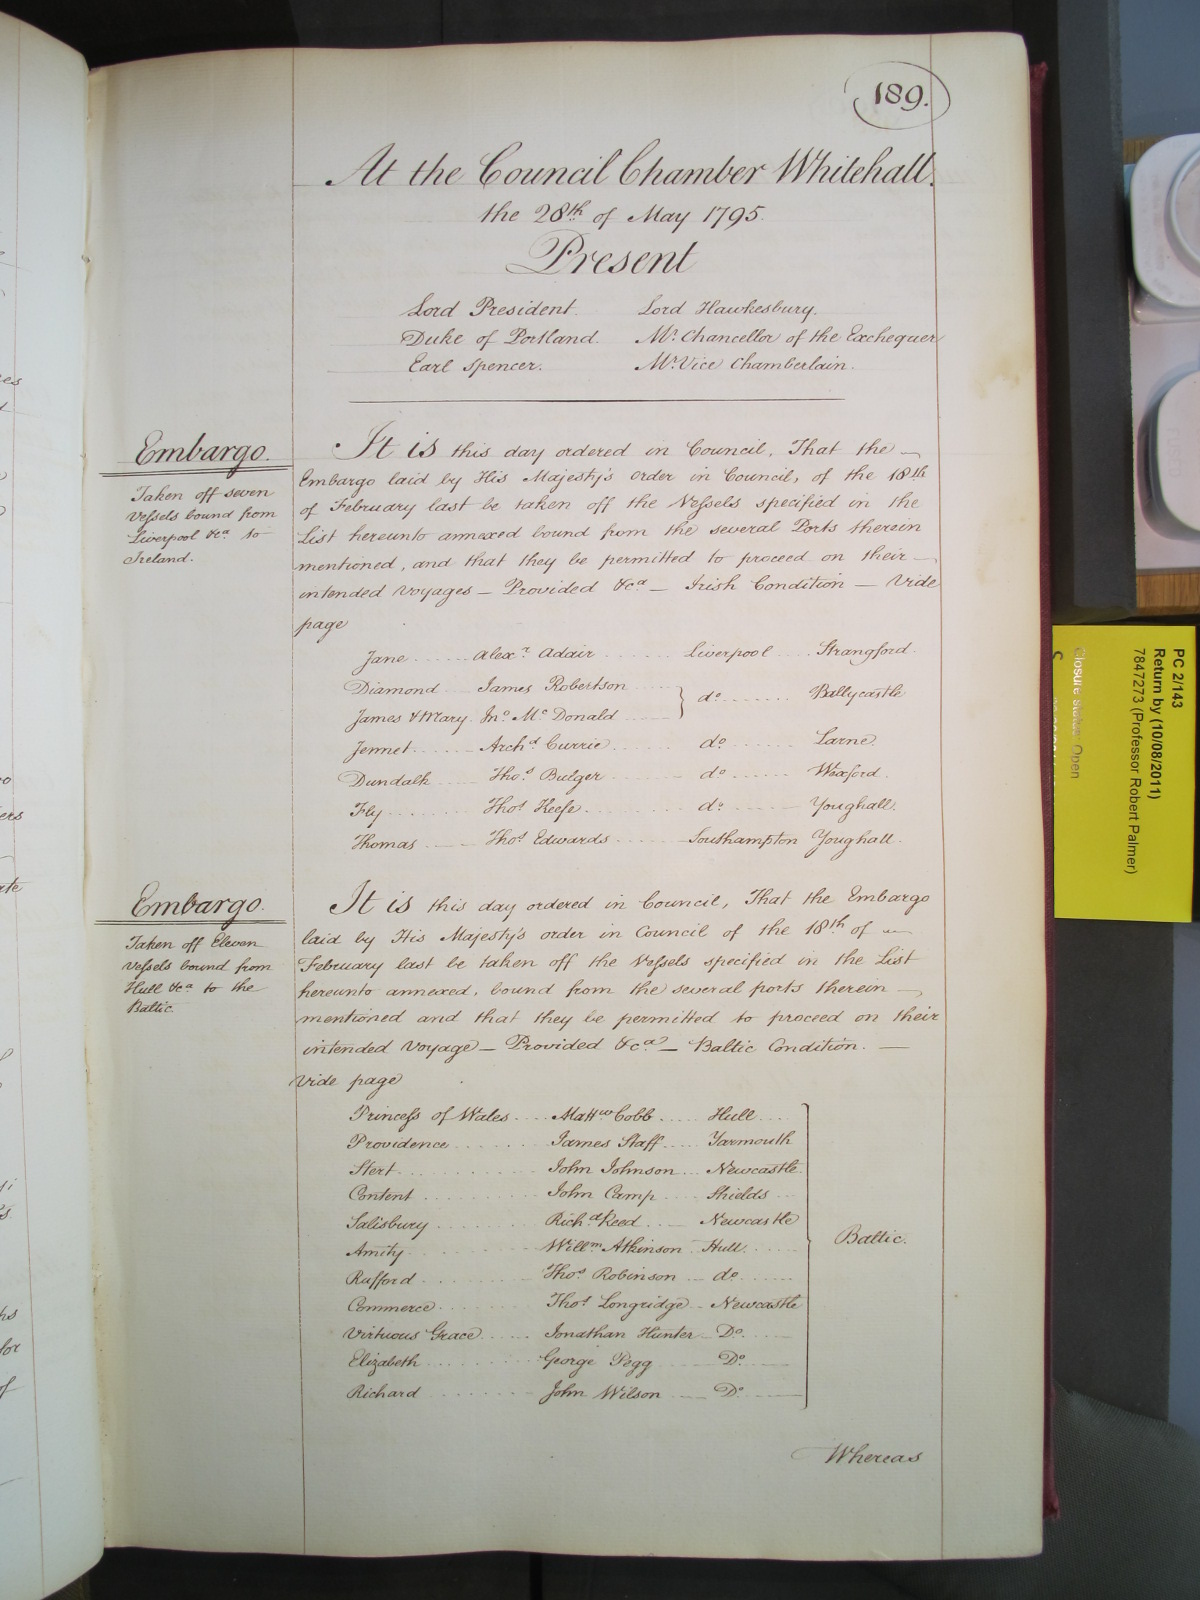 189.
At the Council Chamber Whitehall.
the 28th of May 1795.
Present
Lord President. Lord Hawkesbury.
Duke of Portland. Mr. Chancellor of the Exchequer
Earl Spencer. Mr. Vice Chamberlain.
Embargo.
Taken off seven
Vessels bound from
Liverpool &ca to
Ireland.
It is this day ordered in Council, That the
Embargo laid by His Majesty's order in Council, of the 18th
of February last be taken off the Vessels specified in the
List hereunto annexed bound from the several Ports therein
mentioned, and that they be permitted to proceed on their
intended Voyages — Provided &ca — Irish Condition — Vide
page
Jane ..... Alexr. Adair ..... Liverpool ..... Strangford.
Diamond ... James Robertson ..... do ..... Ballycastle
James & Mary. Jno. McDonald .....
Jennet ..... Archd. Currie ..... do ..... Larne.
Dundalk ... Thos. Bulger ..... do ..... Wexford.
Fly ..... Thos. Keefe ..... do ..... Youghall.
Thomas ..... Thos. Edwards ..... Southampton Youghall.
Embargo.
Taken off Eleven
Vessels bound from
Hull &ca to the
Baltic.
It is this day ordered in Council, That the Embargo
laid by His Majesty's order in Council of the 18th of
February last be taken off the Vessels specified in the List
hereunto annexed, bound from the several ports therein
mentioned and that they be permitted to proceed on their
intended Voyage — Provided &ca — Baltic Condition. —
Vide page
Princess of Wales .... Mattw Cobb .... Hull ....
Providence ..... James Staff .... Yarmouth
Stert ..... John Johnson ... Newcastle
Content ..... John Camp .... Shields ...
Salisbury ..... Richd. Reed .... Newcastle
Amity ..... Willm. Atkinson .. Hull ..... Baltic.
Rufford ..... Thos. Robinson ... do .....
Commerce ..... Thos. Longridge .. Newcastle
Virtuous Grace ..... Jonathan Hunter .. Do .....
Elizabeth ..... George Pegg ..... Do .....
Richard ..... John Wilson ..... Do .....
Whereas
PC 2/143
Return by (10/08/2011)
7847273 (Professor Robert Palmer)
Closure status: Open